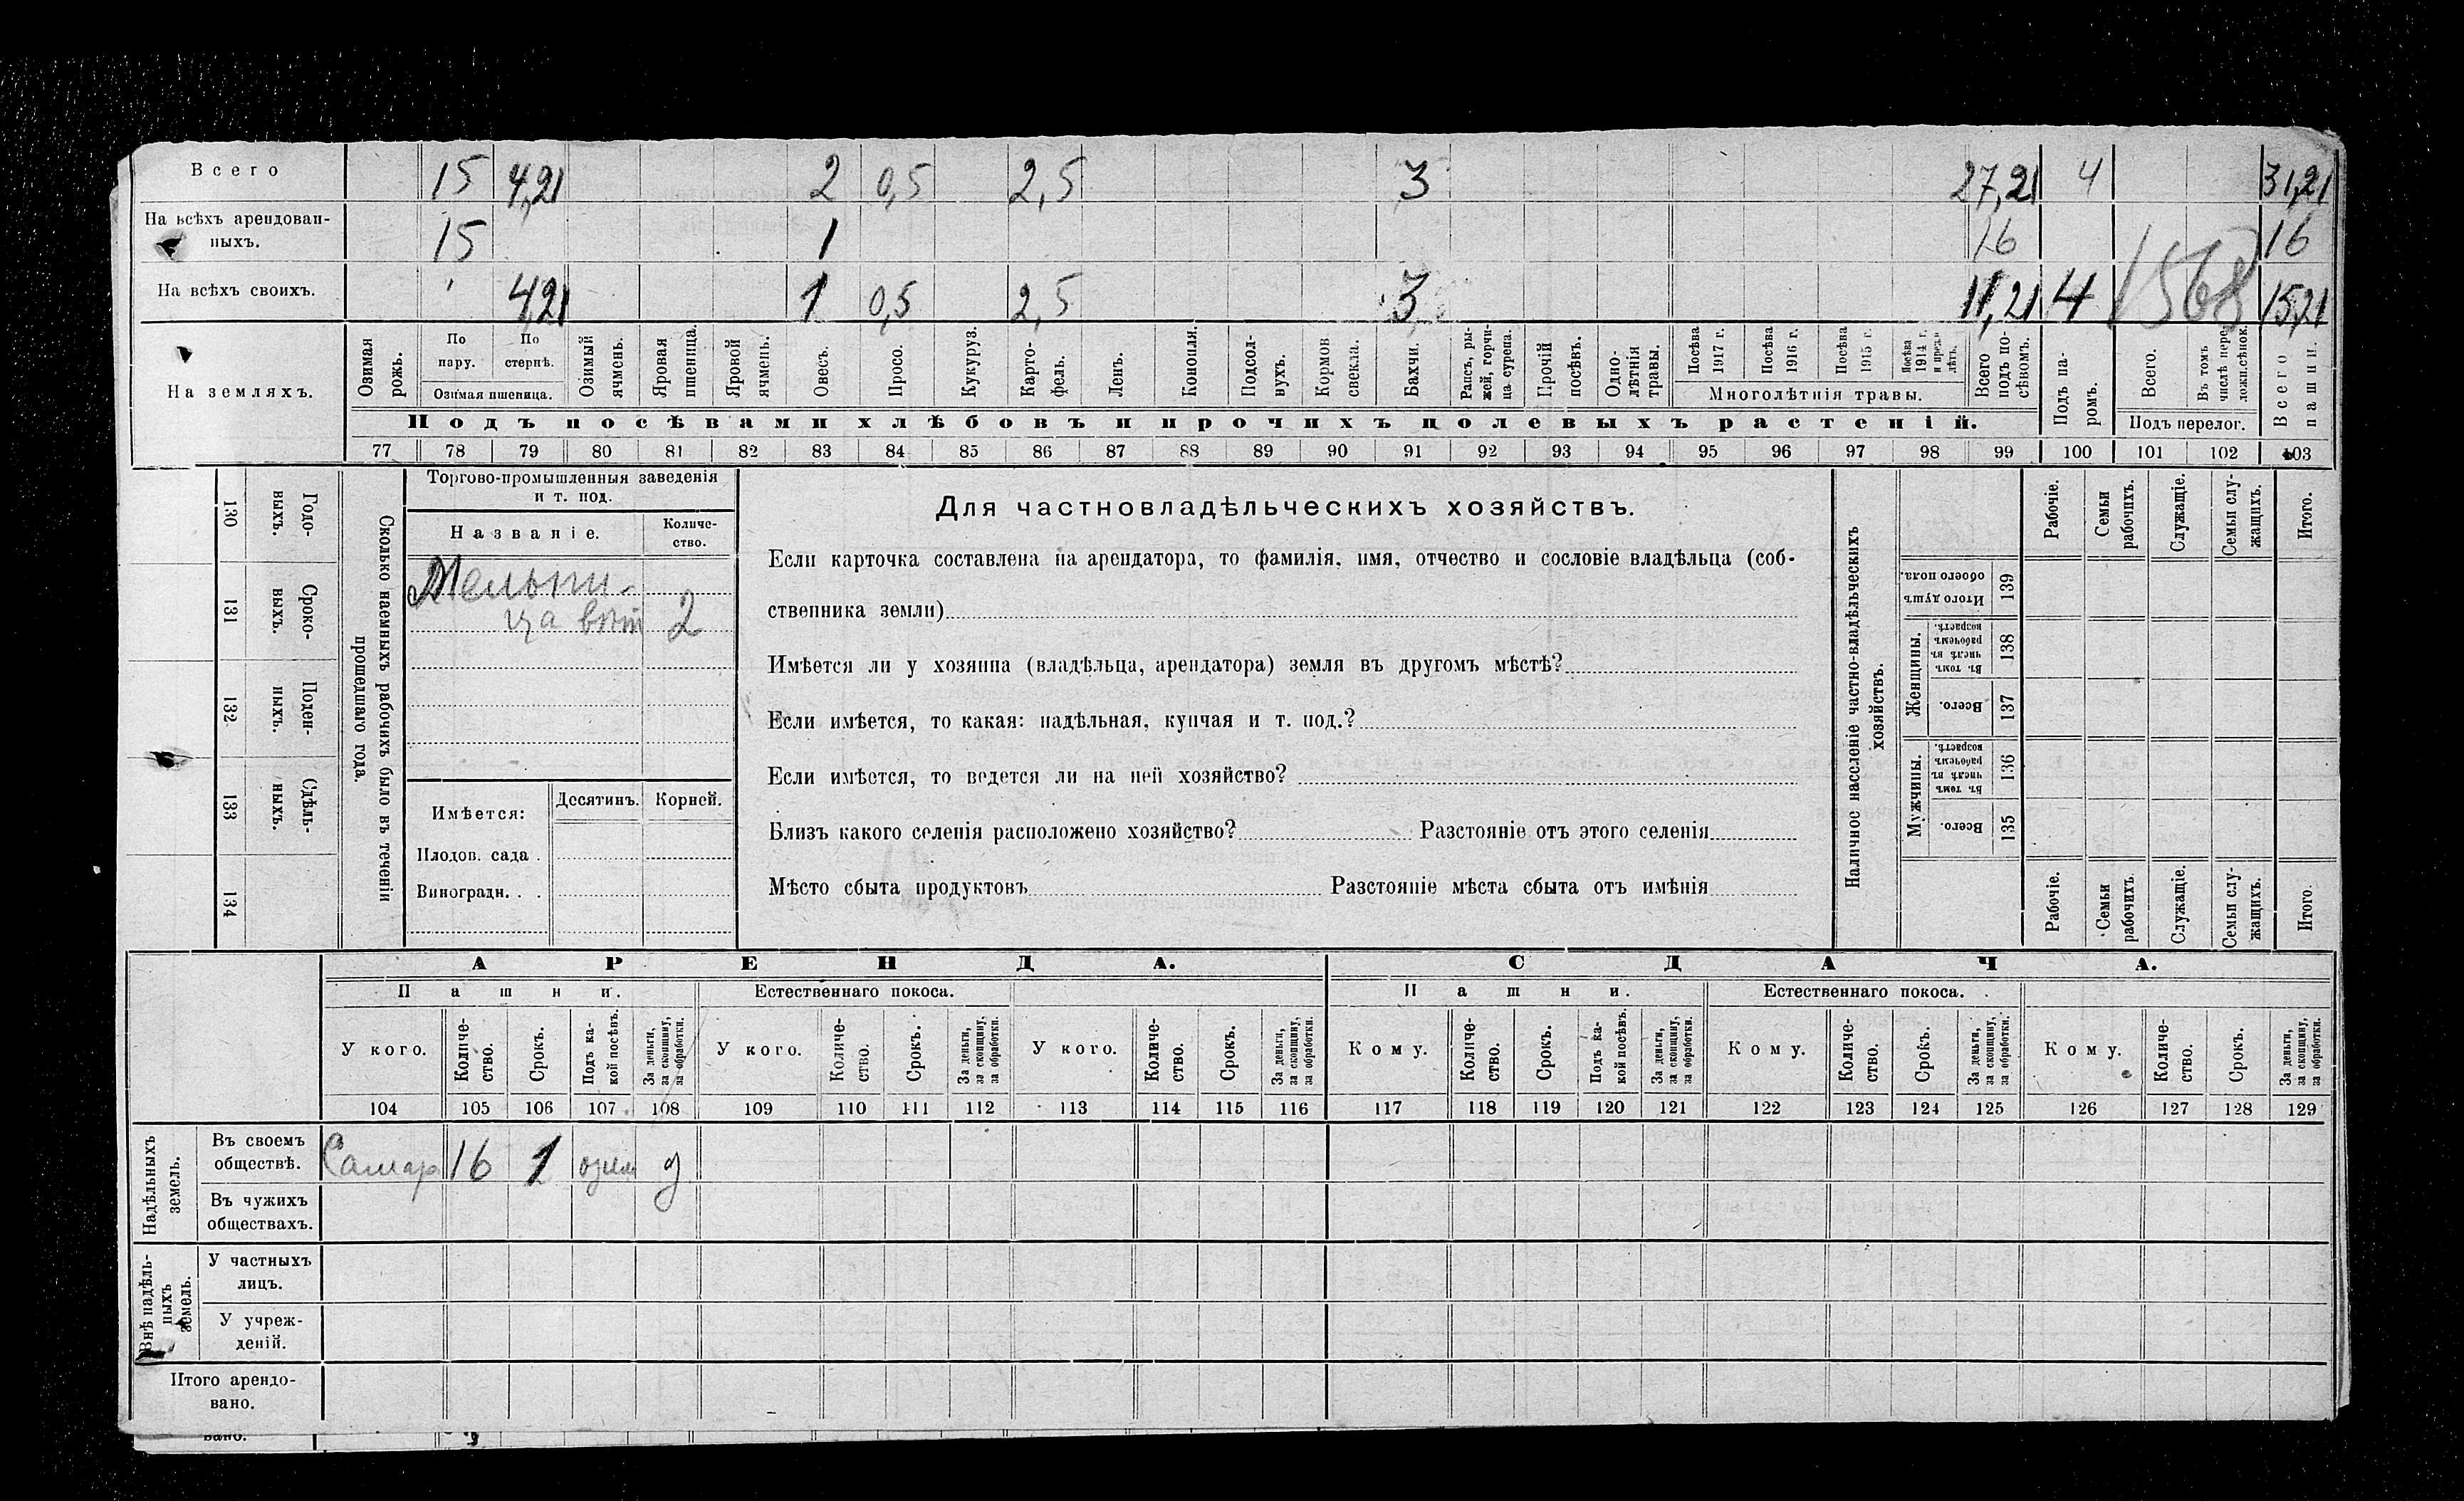 Всего 15 4,21 2 0,5 2,5 3 27,21 4 31,21
На всѣхъ арендован-
ныхъ. 15 1 16 16
На всѣхъ своихъ. 4,21 1 0,5 2,5 3 11,21 4 1568 15,21
На земляхъ.
Озимая рожь.
По пару.
По стернѣ.
Озимая пшеница.
Озимый ячмень.
Яровая пшеница.
Яровой ячмень.
Овесъ.
Просо.
Кукуруз.
Карто-
фель.
Ленъ.
Конопля.
Подсол-
нухъ.
Кормов. свекла.
Бахчи.
Рапсъ, ры-
жей, горчи-
ца сурепа.
Прочій посѣвъ.
Одно-
лѣтнія травы.
Посѣва 1917 г.
Посѣва 1916 г.
Посѣва 1915 г.
Посѣва 1914 г. и пред. лѣтъ.
Многолѣтнія травы.
Всего подъ по-
сѣвомъ.
Подъ па-
ромъ.
Всего.
Въ томъ числѣ пере-
ложн.сѣнок.
Подъ перелог.
Всего пашни.
Подъ посѣвами хлѣбовъ и прочихъ полевыхъ растеній.
77 78 79 80 81 82 83 84 85 86 87 88 89 90 91 92 93 94 95 96 97 98 99 100 101 102 103
130 Годо-
выхъ.
131 Сроко-
выхъ.
132 Поден-
ныхъ.
133 Сдѣль-
ныхъ.
134
Сколько наемныхъ рабочихъ было въ теченіи
прошедшаго года.
Торгово-промышленныя заведенія
и т. под.
Названіе.
Количе-
ство.
Мельни-
ца вѣт 2
Имѣется:
Десятинъ.
Корней.
Плодов. сада .
Виноградн. . .
Для частновладѣльческихъ хозяйствъ.
Если карточка составлена на арендатора, то фамилія, имя, отчество и сословіе владѣльца (соб-
ственника земли)
Имѣется ли у хозяина (владѣльца, арендатора) земля въ другомъ мѣстѣ?
Если имѣется, то какая: надѣльная, купчая и т. под.?
Если имѣется, то ведется ли на ней хозяйство?
Близъ какого селенія расположено хозяйство? Разстояніе отъ этого селенія
Мѣсто сбыта продуктовъ Разстояніе мѣста сбыта отъ имѣнія
Наличное населеніе частно-владѣльческихъ
хозяйствъ.
Рабочіе.
Семьи рабочихъ.
Служащіе.
Семьи слу-
жащихъ.
Итого.
Итого душъ обоего пола. 139
Женщины.
Въ томъ числѣ въ рабочемъ возрастѣ. 138
Всего. 137
Мужчины.
Въ томъ числѣ въ рабочемъ возрастѣ. 136
Всего. 135
Рабочіе.
Семьи рабочихъ.
Служащіе.
Семьи слу-
жащихъ.
Итого.
АРЕНДА. СДАЧА.
Пашни. Естественнаго покоса. Пашни. Естественнаго покоса.
У кого.
Количе-
ство.
Срокъ.
Подъ ка-
кой посѣвъ.
За деньги, за скопщину, за обработки.
У кого.
Количе-
ство.
Срокъ.
За деньги, за скопщину, за обработки.
У кого.
Количе-
ство.
Срокъ.
За деньги, за скопщину, за обработки.
Кому.
Количе-
ство.
Срокъ.
Подъ ка-
кой посѣвъ.
За деньги, за скопщину, за обработки.
Кому.
Количе-
ство.
Срокъ.
За деньги, за скопщину, за обработки.
Кому.
Количе-
ство.
Срокъ.
За деньги, за скопщину, за обработки.
104 105 106 107 108 109 110 111 112 113 114 115 116 117 118 119 120 121 122 123 124 125 126 127 128 129
Надѣльныхъ
земель.
Въ своемъ
обществѣ. Самар 16 1 озим д
Въ чужихъ
обществахъ.
Внѣ надѣль-
ныхъ
земель.
У частныхъ
лицъ.
У учреж-
деній.
Итого арендо-
вано.
вано.